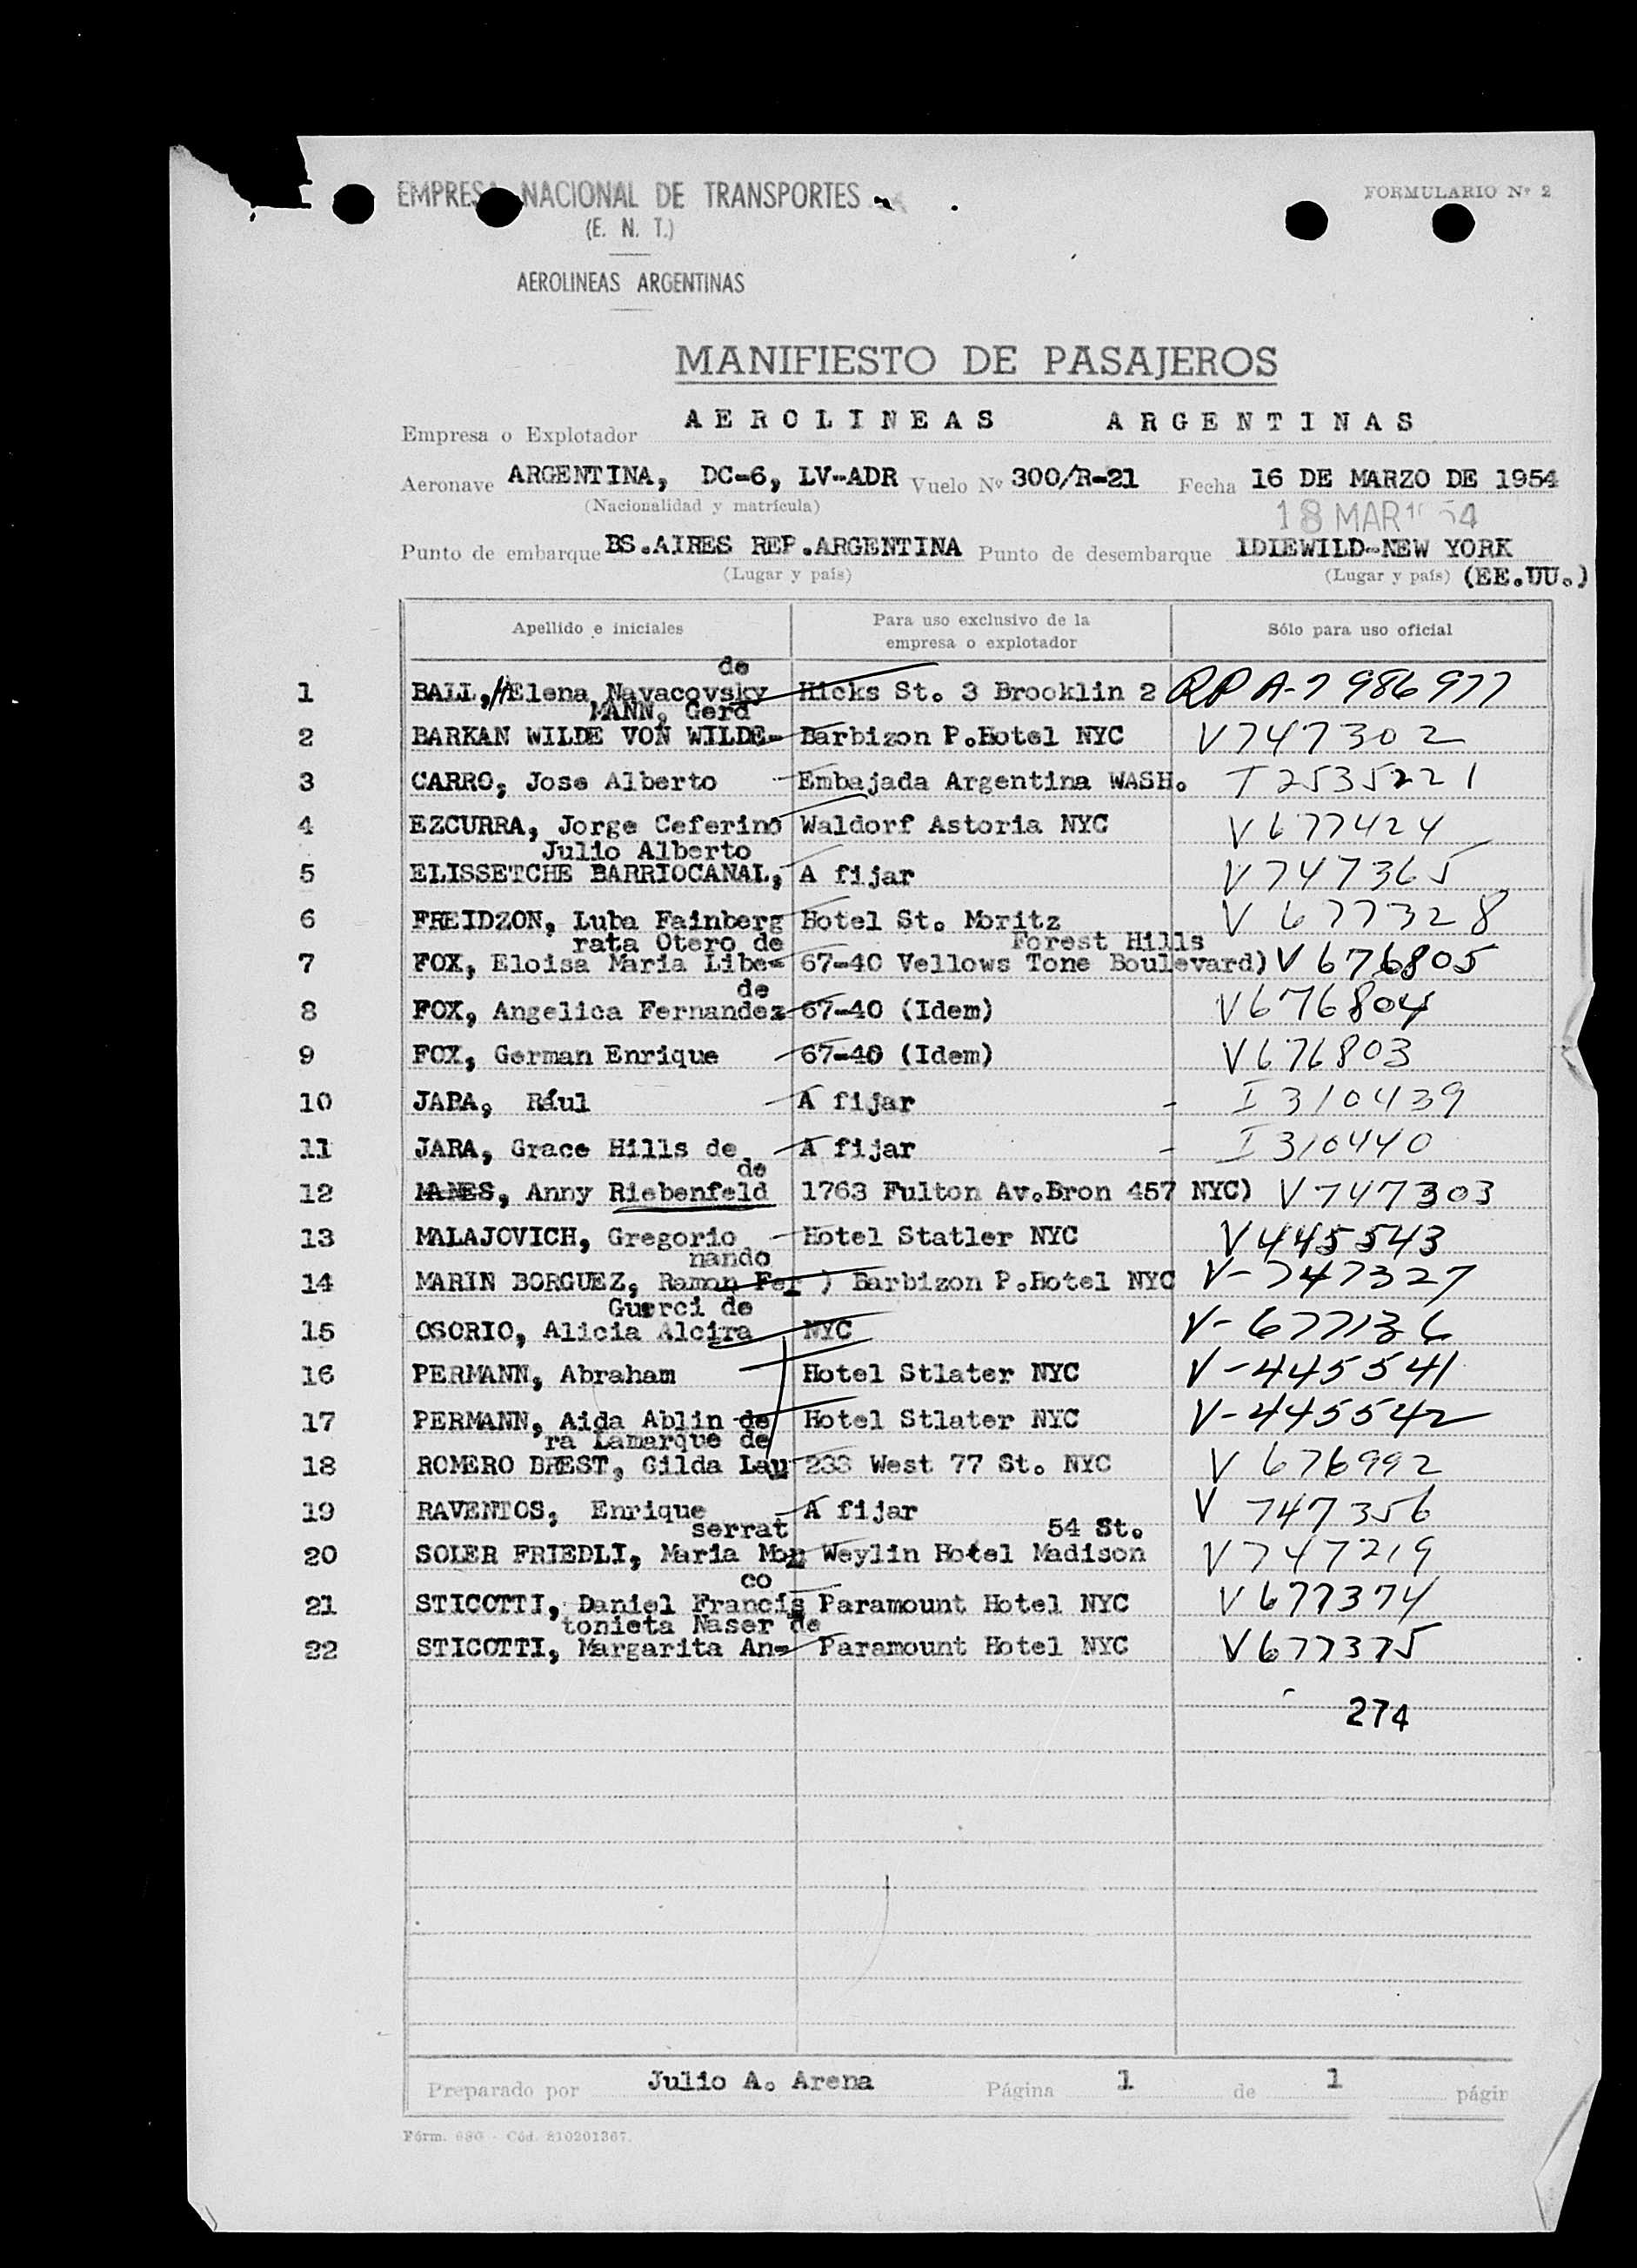 EMPRESA NACIONAL DE TRANSPORTES
FORMULARIO Nº 2
(E. N. T.)
AEROLINEAS ARGENTINAS
MANIFIESTO DE PASAJEROS
Empresa o Explotador AEROLINEAS ARGENTINAS
Aeronave ARGENTINA, DC-6, LV-ADR Vuelo Nº 300/R-21 Fecha 16 DE MARZO DE 1954
(Nacionalidad y matrícula)
18 MAR 1954
Punto de embarque BS.AIRES REP.ARGENTINA Punto de desembarque IDIEWILD-NEW YORK
(Lugar y país) (Lugar y país) (EE.UU.)
Apellido e iniciales Para uso exclusivo de la empresa o explotador Sólo para uso oficial
de
1 BALI, HElena Navacovsky Hicks St. 3 Brooklin 2 RP A-7986977
MANN, Gerd
2 BARKAN WILDE VON WILDE- Barbizon P.Hotel NYC V747302
3 CARRO, Jose Alberto Embajada Argentina WASH. T2535221
4 EZCURRA, Jorge Ceferino Waldorf Astoria NYC V677424
Julio Alberto
5 ELISSETCHE BARRIOCANAL, A fijar V747365
6 FREIDZON, Luba Fainberg Hotel St. Moritz V 677328
rata Otero de Forest Hills
7 FOX, Eloisa Maria Libe- 67-40 Vellows Tone Boulevard) V676805
de
8 FOX, Angelica Fernandez 67-40 (Idem) V676804
9 FOX, German Enrique 67-40 (Idem) V676803
10 JARA, Rául A fijar - I310439
11 JARA, Grace Hills de A fijar - I310440
de
12 MANES, Anny Riebenfeld 1763 Fulton Av.Bron 457 NYC) V747303
13 MALAJOVICH, Gregorio Hotel Statler NYC V445543
nando
14 MARIN BORGUEZ, Ramon Fer ) Barbizon P.Hotel NYC V-747327
Guerci de
15 OSORIO, Alicia Alcira NYC V-677136
16 PERMANN, Abraham Hotel Stlater NYC V-445541
17 PERMANN, Aida Ablin de Hotel Stlater NYC V-445542
ra Lamarque de
18 ROMERO BREST, Gilda Lau 233 West 77 St. NYC V 676992
19 RAVENTOS, Enrique A fijar V 747356
serrat 54 St.
20 SOLER FRIEDLI, Maria Mon Weylin Hotel Madison V747219
co
21 STICOTTI, Daniel Francis Paramount Hotel NYC V677374
tonieta Naser de
22 STICOTTI, Margarita An- Paramount Hotel NYC V677375
274
Preparado por Julio A. Arena Página 1 de 1 págin
Fórm. 680 - Cód. 810201367.